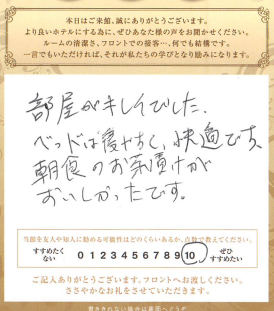 本日はご来館、誠にありがとうございます。
より良いホテルにする為に、ぜひお客様の声をお聞かせください。
ルームの清潔さ、フロントでの接客…、何でも結構です。
一言でもいただければ、それが私たちの学びとなり励みになります。
部屋がキレイでした、
ベッドは寝やすく、快適です、
朝食のお茶漬けが
おいしかったです。
当館を友人や知人に勧める可能性はどのくらいあるか、点数で教えてください。
すすめたくない 0 1 2 3 4 5 6 7 8 9 10 ぜひすすめたい
ご記入ありがとうございます。フロントへお渡しください。
ささやかなお礼をさせていただきます。